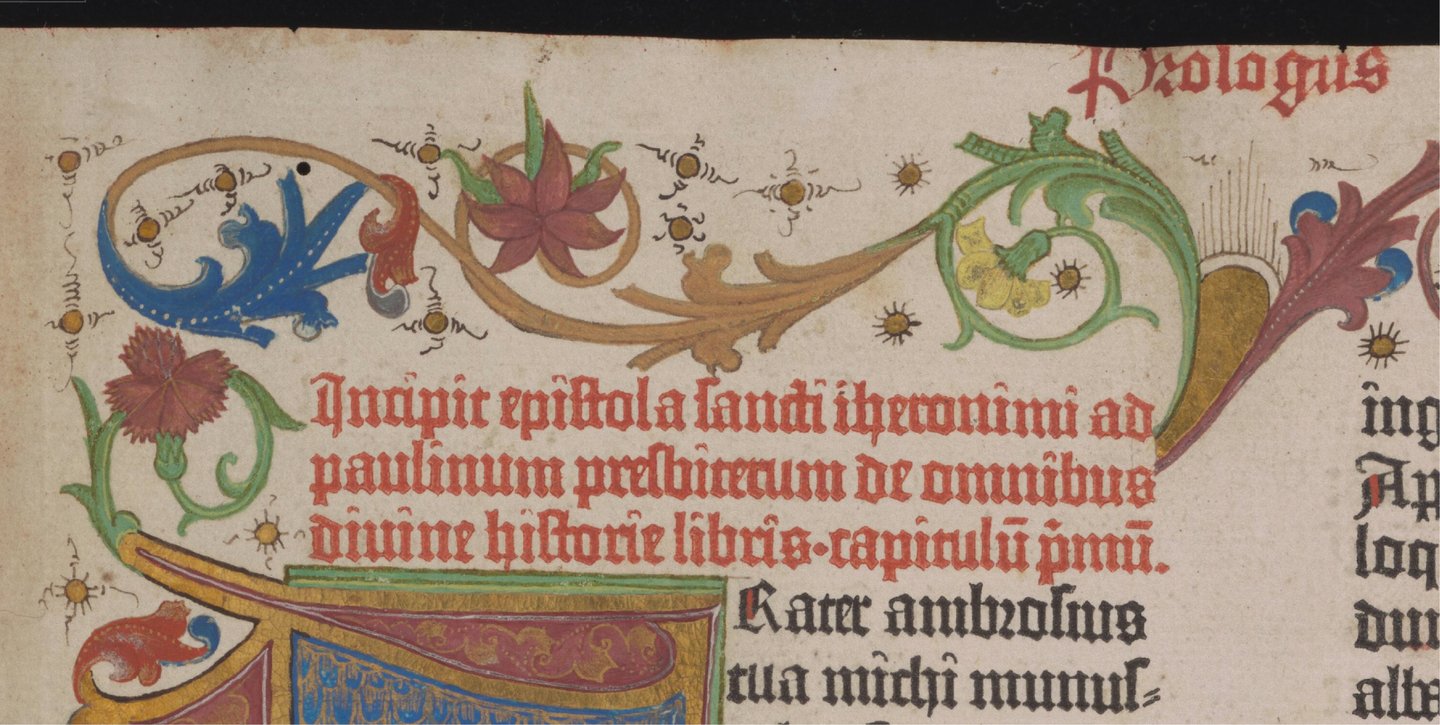 Prologus
Incipit epistola sancti iheronimi ad
paulinum presbiterum de omnibus
divine historie libris·capitulū p̄mū.
Rater ambrosius
tua michi munus⸗
ing
Ap
loq
dun
alta